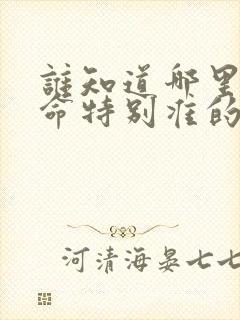 誰知道哪里
命特别准的
河清海晏七七